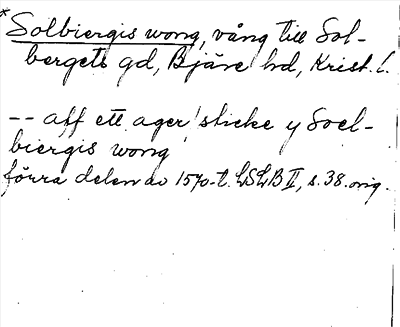 *Solbiergis wong, vång till Sol-
bergets gd, Bjäre hd, Krist. l.
-- aff ett ager sticke y Soel-
biergis wong
förra delen av 1570-t. LSLB II, s. 38. orig.